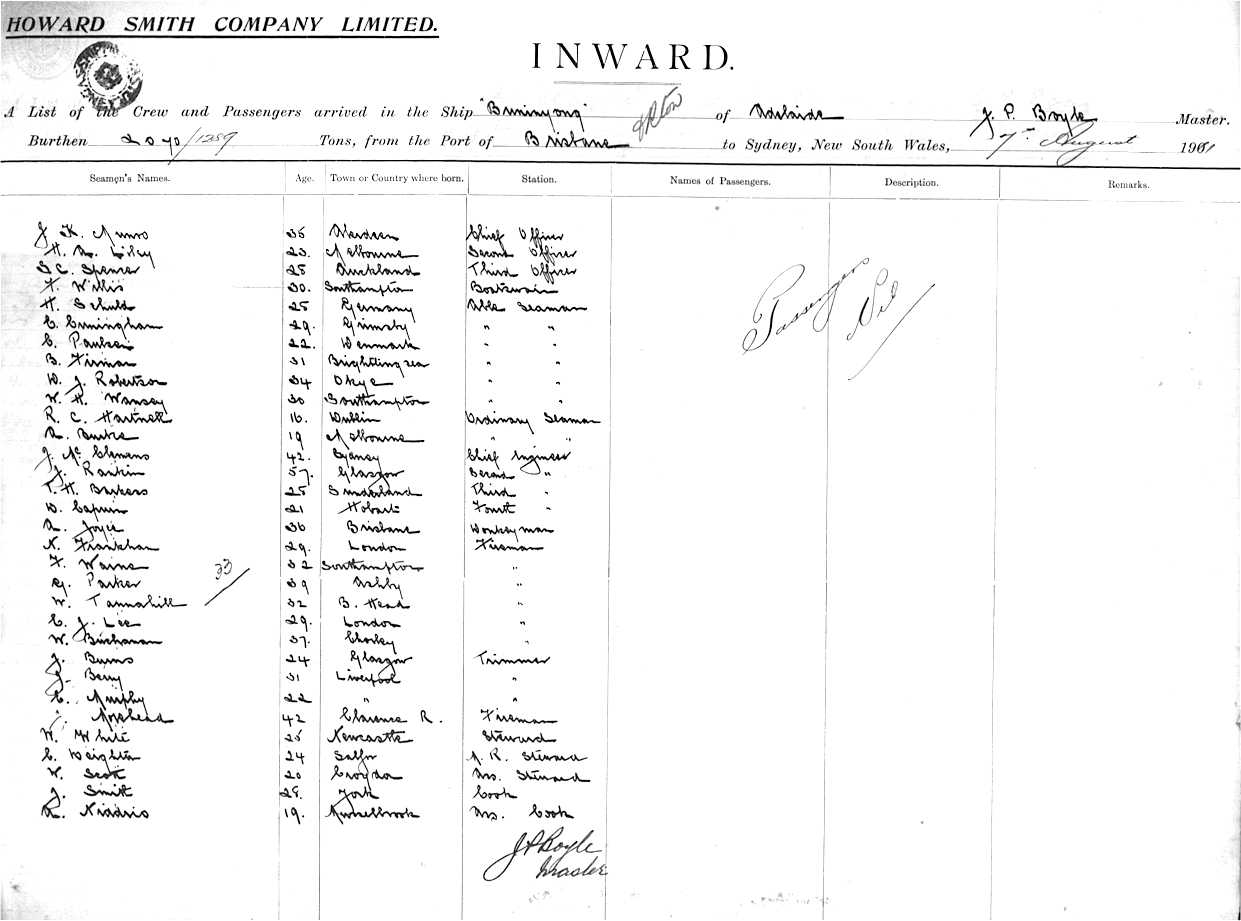 HOWARD SMITH COMPANY LIMITED.
INWARD.
A List of the Crew and Passengers arrived in the Ship "Buninyong" of Adelaide J. P. Boyle Master.
Burthen 2070/1289 Tons, from the Port of Brisbane to Sydney, New South Wales, 7th August 1901
Seamen's Names. Age. Town or Country where born. Station. Names of Passengers. Description. Remarks.
J. K. Munro 35 Aberdeen Chief Officer
H. A. 23. Melbourne Second Officer
S. C. Spence 25 Auckland Third Officer
F. Willis 30. Southampton Boatswain
H. Schuld 25 Germany Able Seaman
C. Cuningham 29. Grimsby " "
C. Paulsen 22. Denmark " "
B. Firman 31 Brightlingsea " "
W. J. Robertson 34 Skye " "
W. H. Wansey 30 Southampton " "
R. C. Hartnett 16. Dublin Ordinary Seaman
A. Burke 19 Melbourne " "
J. Mc Clemens 42. Sydney Chief Engineer
J. Rankin 57. Glasgow Second "
T. H. Barkers 25 Sunderland Third "
W. 21 Hobart Fourth "
A. Joyce 36 Brisbane Donkeyman
N. Frankham 29. London Fireman
F. Warne 32 Southampton "
G. Parker 39 Ashby "
W. Tannahill 32 B. Head "
C. J. Lee 29. London "
W. Buchanan 37. Chorley "
J. Burns 24 Glasgow Trimmer
J. Berry 31 Liverpool "
C. Murphy 22 " "
J. Morehead 42 Clarence R. Fireman
W. White 25 Newcastle Steward
C. Weighton 24 Steward
W. Scott 20 Croydon Ass. Steward
J. Smith 28. York Cook
A. Niddris 19. Muswellbrook Ass. Cook
33
Passengers Nil
J P Boyle
Master